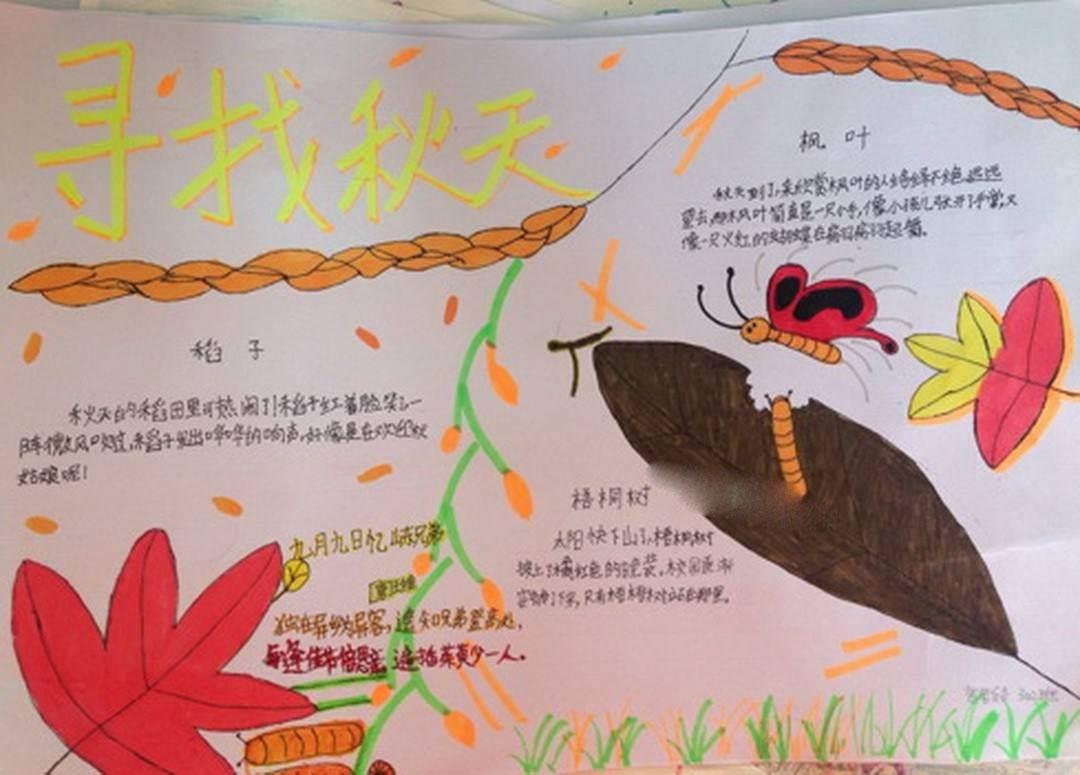 寻找秋天
枫叶
秋天到了,来欣赏枫叶的人络绎不绝,远远
望去,那枫叶简直是一只小手,像小孩儿张开了手掌,又
像一只火红的蝴蝶在翩翩起舞。
稻子
秋天的稻田里可热闹了!稻子红着脸笑
阵微风吹过,稻子发出哗哗的响声,好像是在欢迎秋
姑娘呢!
梧桐树
太阳快下山了,梧桐树
披上了橘红色的晚装。校园逐渐
安静了下来,只有梧桐树站在那里。
九月九日忆山东兄弟
唐王维
独在异乡为异客,遥知兄弟登高处,
每逢佳节倍思亲。遍插茱萸少一人。